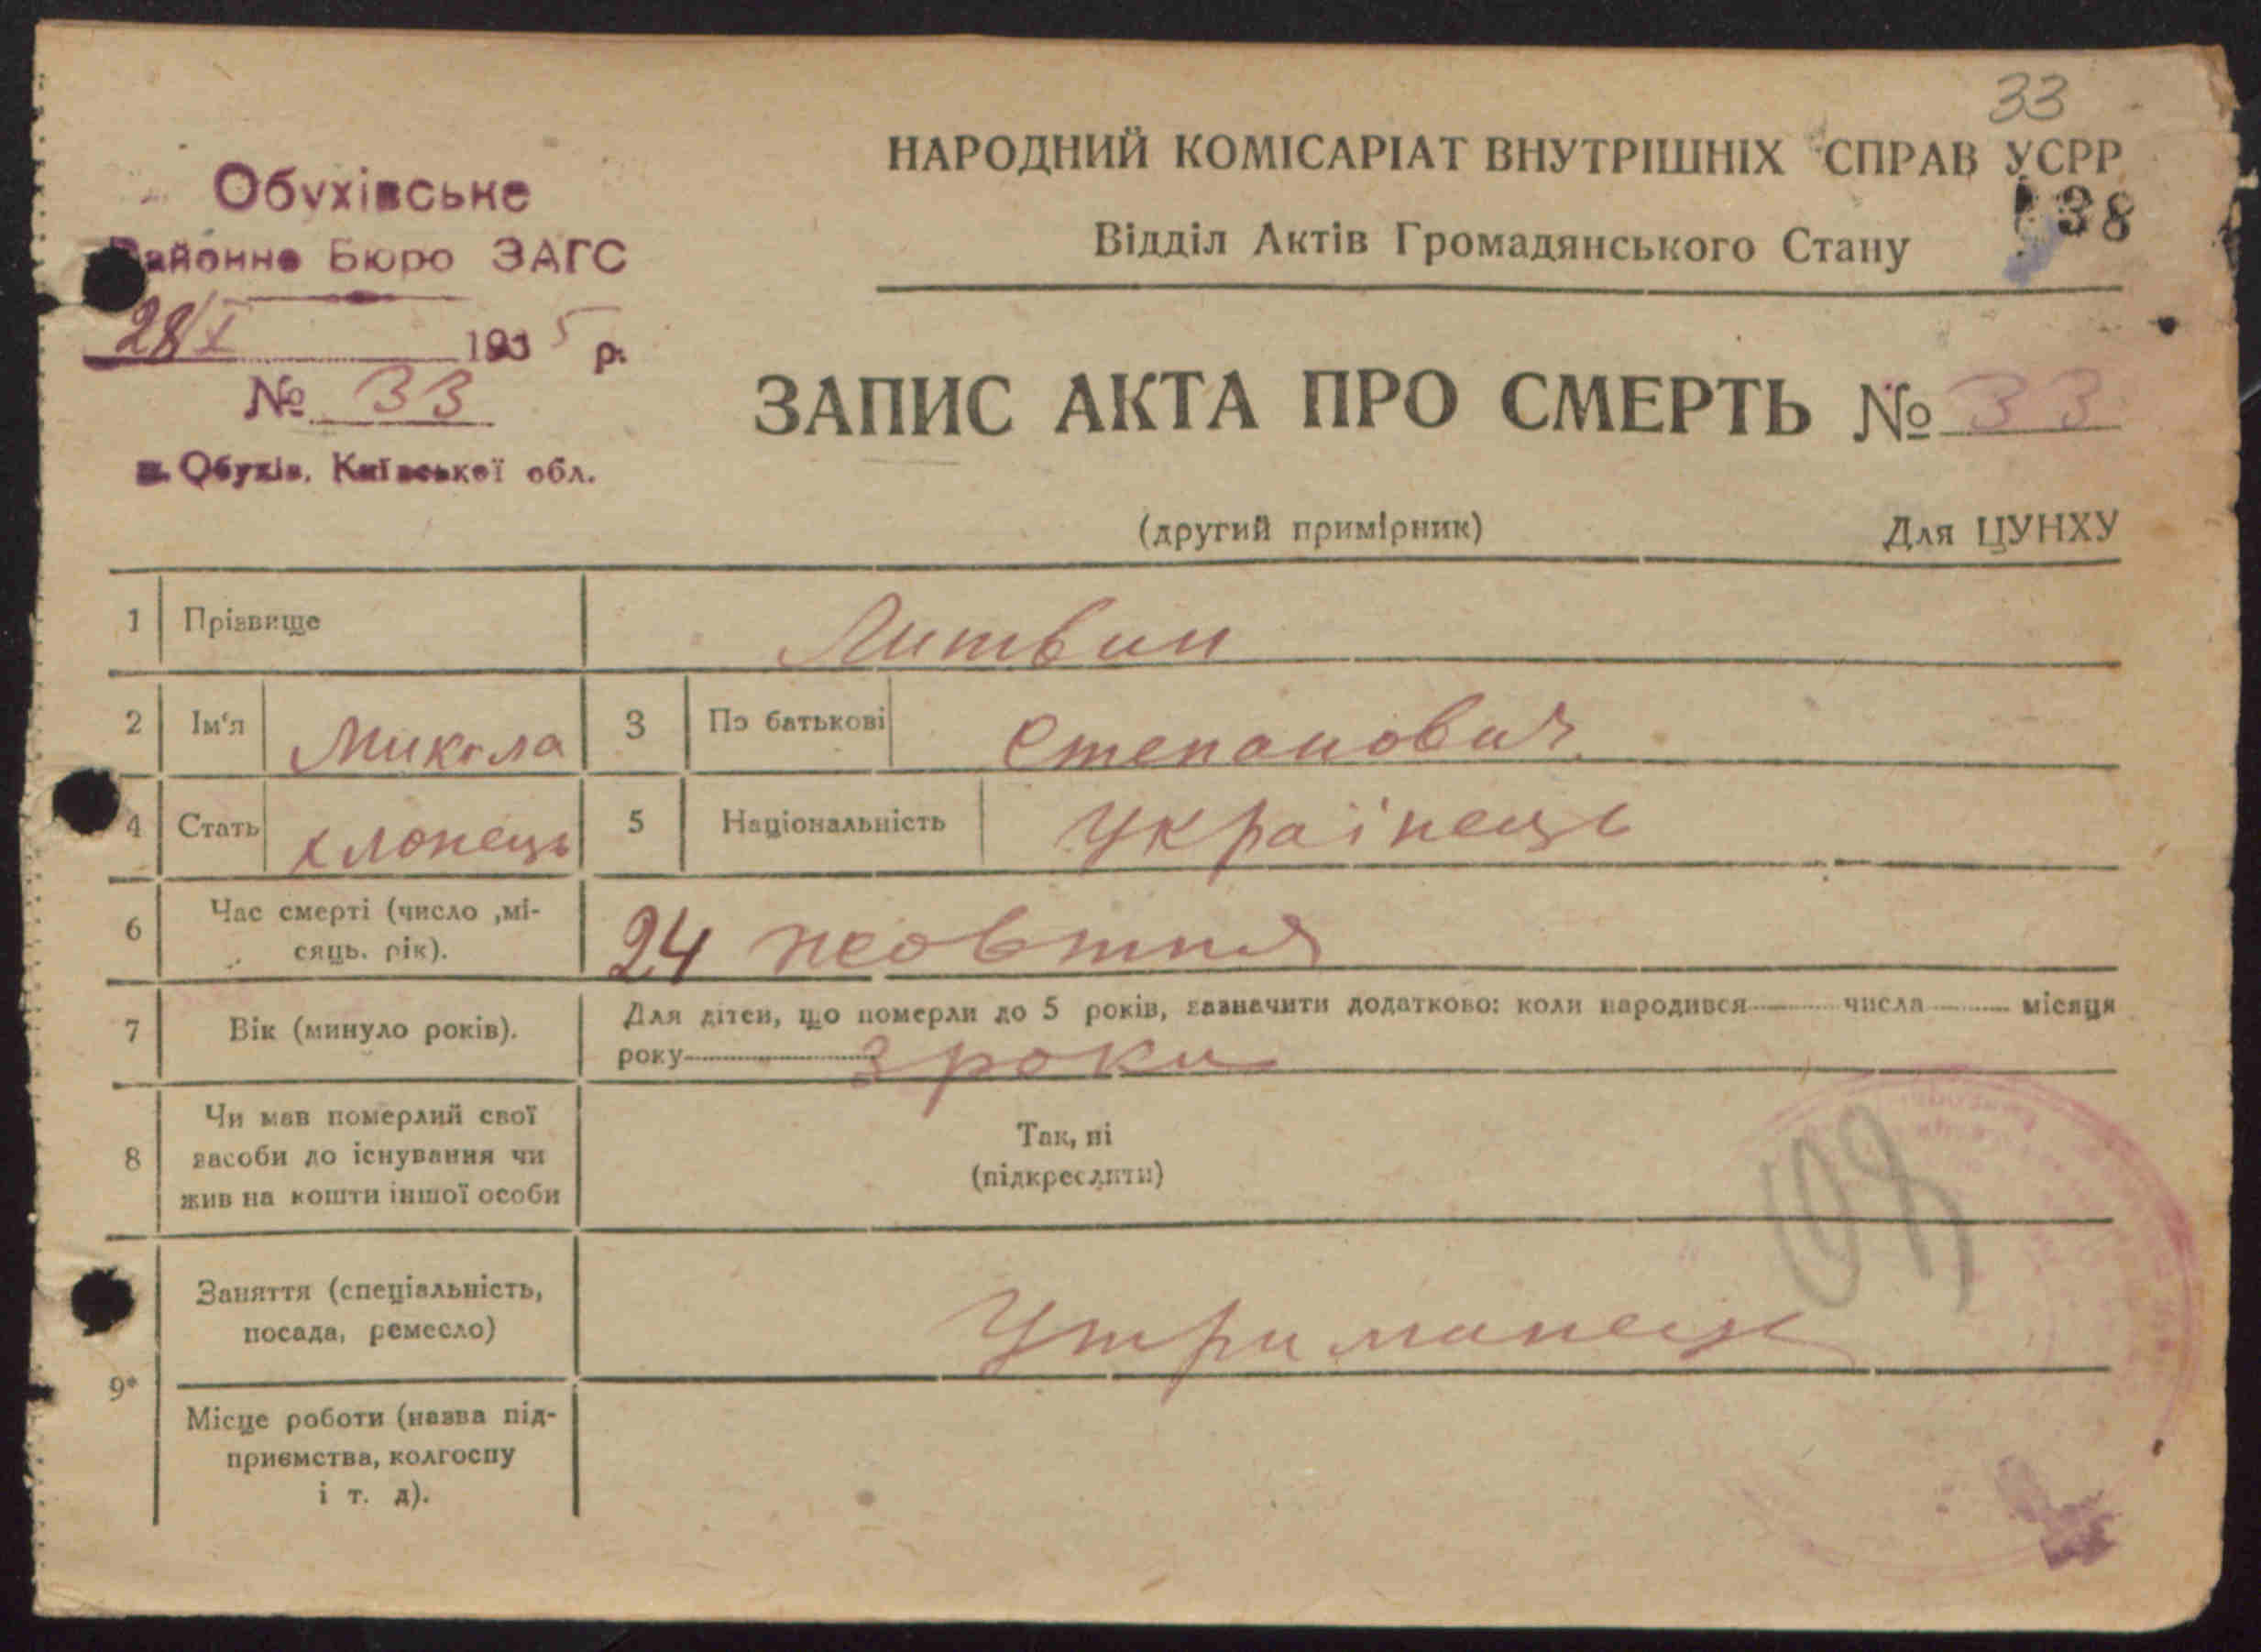 33
НАРОДНИЙ КОМІСАРІАТ ВНУТРІШНІХ СПРАВ УСРР
38
Відділ Актів Громадянського Стану
Обухівське
Районне Бюро ЗАГС
28/X 1935 р.
№ 33
м. Обухів, Київської обл.
ЗАПИС АКТА ПРО СМЕРТЬ № 33
(другий примірник) Для ЦУНХУ
1 Прізвище Литвин
2 Ім'я Микола 3 По батькові Степанович
4 Стать хлопець 5 Національність Українець
6 Час смерті (число ,мі-
сяць. рік). 24 жовтня
7 Вік (минуло років). Для дітей, що померли до 5 років, зазначити додатково: коли народився числа місяця
року 3 роки
8 Чи мав померлий свої
засоби до існування чи
жив на кошти іншої особи
Так, ні
(підкреслити)
9* Заняття (спеціальність,
посада, ремесло) Утриманець
Місце роботи (назва під-
приємства, колгоспу
і т. д).